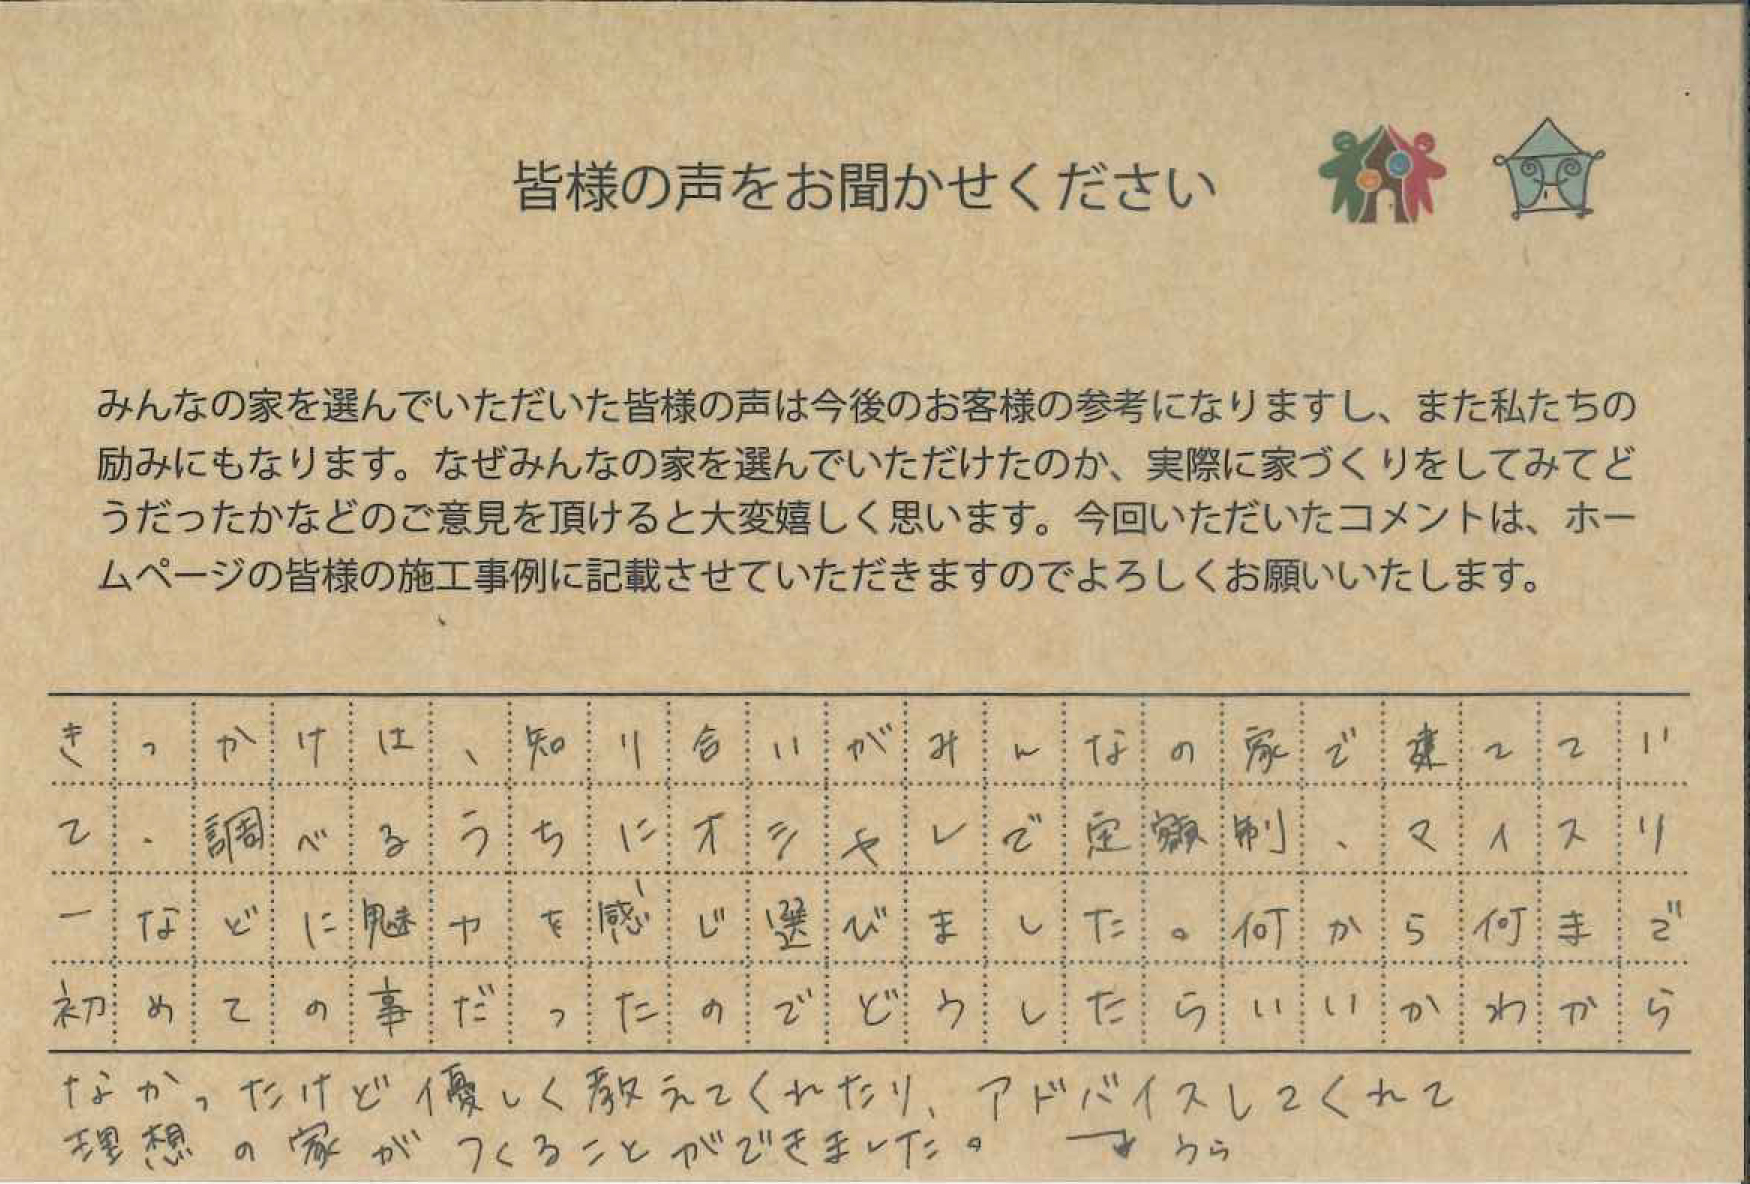 皆様の声をお聞かせください
みんなの家を選んでいただいた皆様の声は今後のお客様の参考になりますし、また私たちの
励みにもなります。なぜみんなの家を選んでいただけたのか、実際に家づくりをしてみてど
うだったかなどのご意見を頂けると大変嬉しく思います。今回いただいたコメントは、ホー
ムページの皆様の施工事例に記載させていただきますのでよろしくお願いいたします。
きっかけは、知り合いがみんなの家で建ててい
て、調べるうちにオシャレで定額制、マイスリ
ーなどに魅力を感じ選びました。何から何まで
初めての事だったのでどうしたらいいかわから
なかったけど優しく教えてくれたり、アドバイスしてくれて
理想の家がつくることができました。 → うら